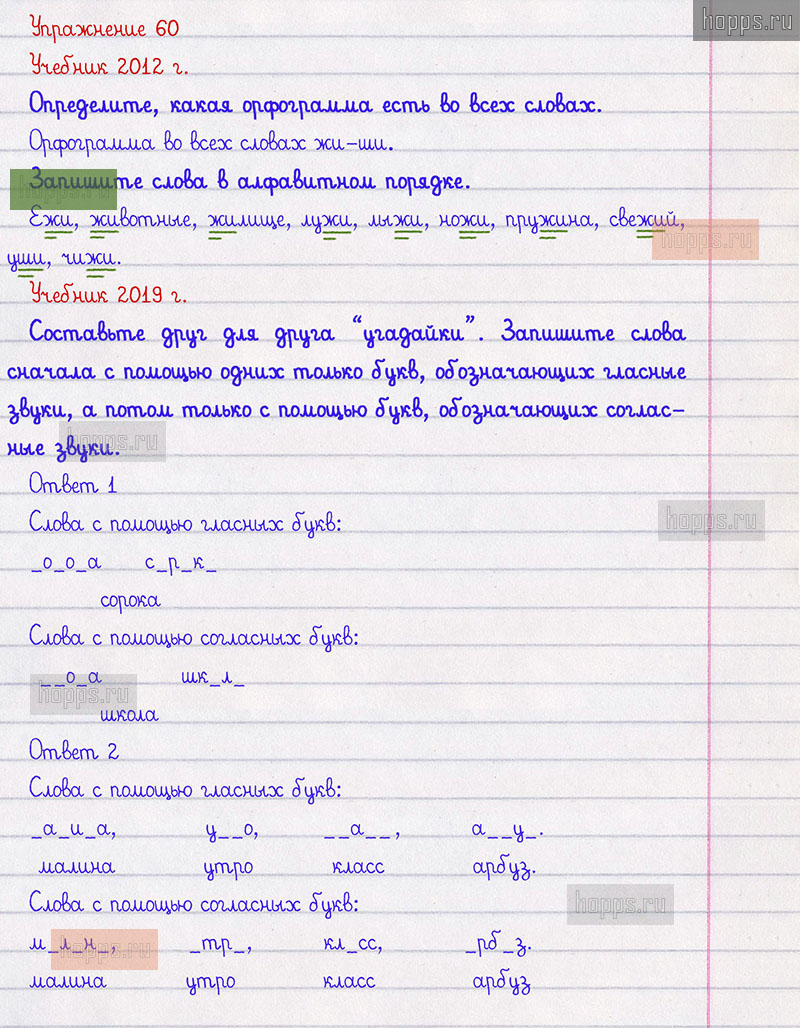 hopps.ru
Упражнение 60
Учебник 2012 г.
Определите, какая орфограмма есть во всех словах.
Орфограмма во всех словах жи-ши.
Запишите слова в алфавитном порядке.
Ежи, животные, жилище, лужи, лыжи, ножи, пружина, свежий,
hopps.ru
уши, чижи.
Учебник 2019 г.
Составьте друг для друга “угадайки”. Запишите слова
сначала с помощью одних только букв, обозначающих гласные
звуки, а потом только с помощью букв, обозначающих соглас-
ные звуки.
hopps.ru
Ответ 1
Слова с помощью гласных букв:
hopps.ru
_о_о_а с_р_к_
сорока
Слова с помощью согласных букв:
__о_а шк_л_
hopps.ru
школа
Ответ 2
Слова с помощью гласных букв:
_а_и_а, у__о, __а__, а__у_.
малина утро класс арбуз.
Слова с помощью согласных букв:
hopps.ru
м_л_н_, _тр_, кл_сс, _рб_з.
hopps.ru
малина утро класс арбуз